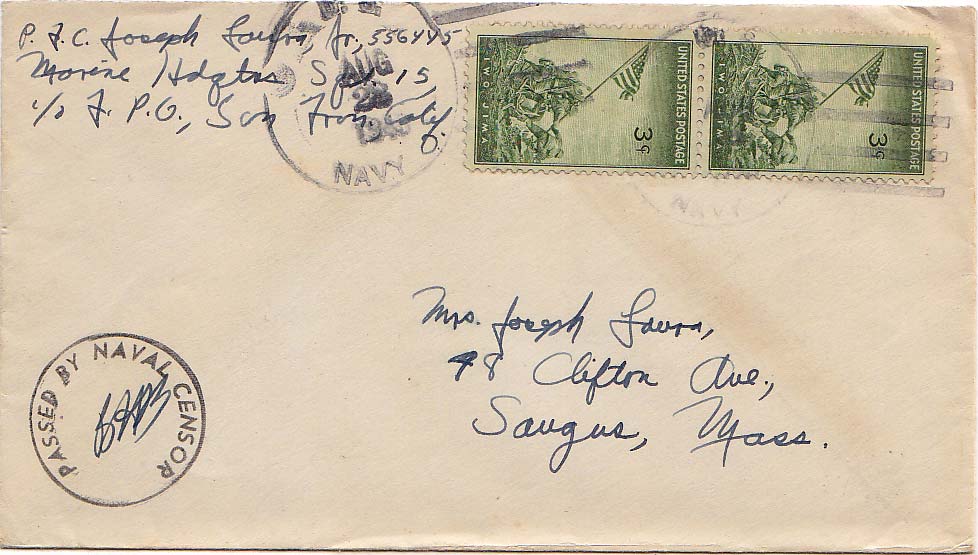 P.F.C. Joseph Jr. 556445
Marine Hdqtrs 15
c/o F.P.O., San Fran. Calif.
AUG
28
NAVY
UNITED STATES POSTAGE
IWO JIMA
3¢
UNITED STATES POSTAGE
IWO JIMA
3¢
NAVY
Mrs. Joseph
48 Clifton Ave.,
Saugus, Mass.
PASSED BY NAVAL CENSOR